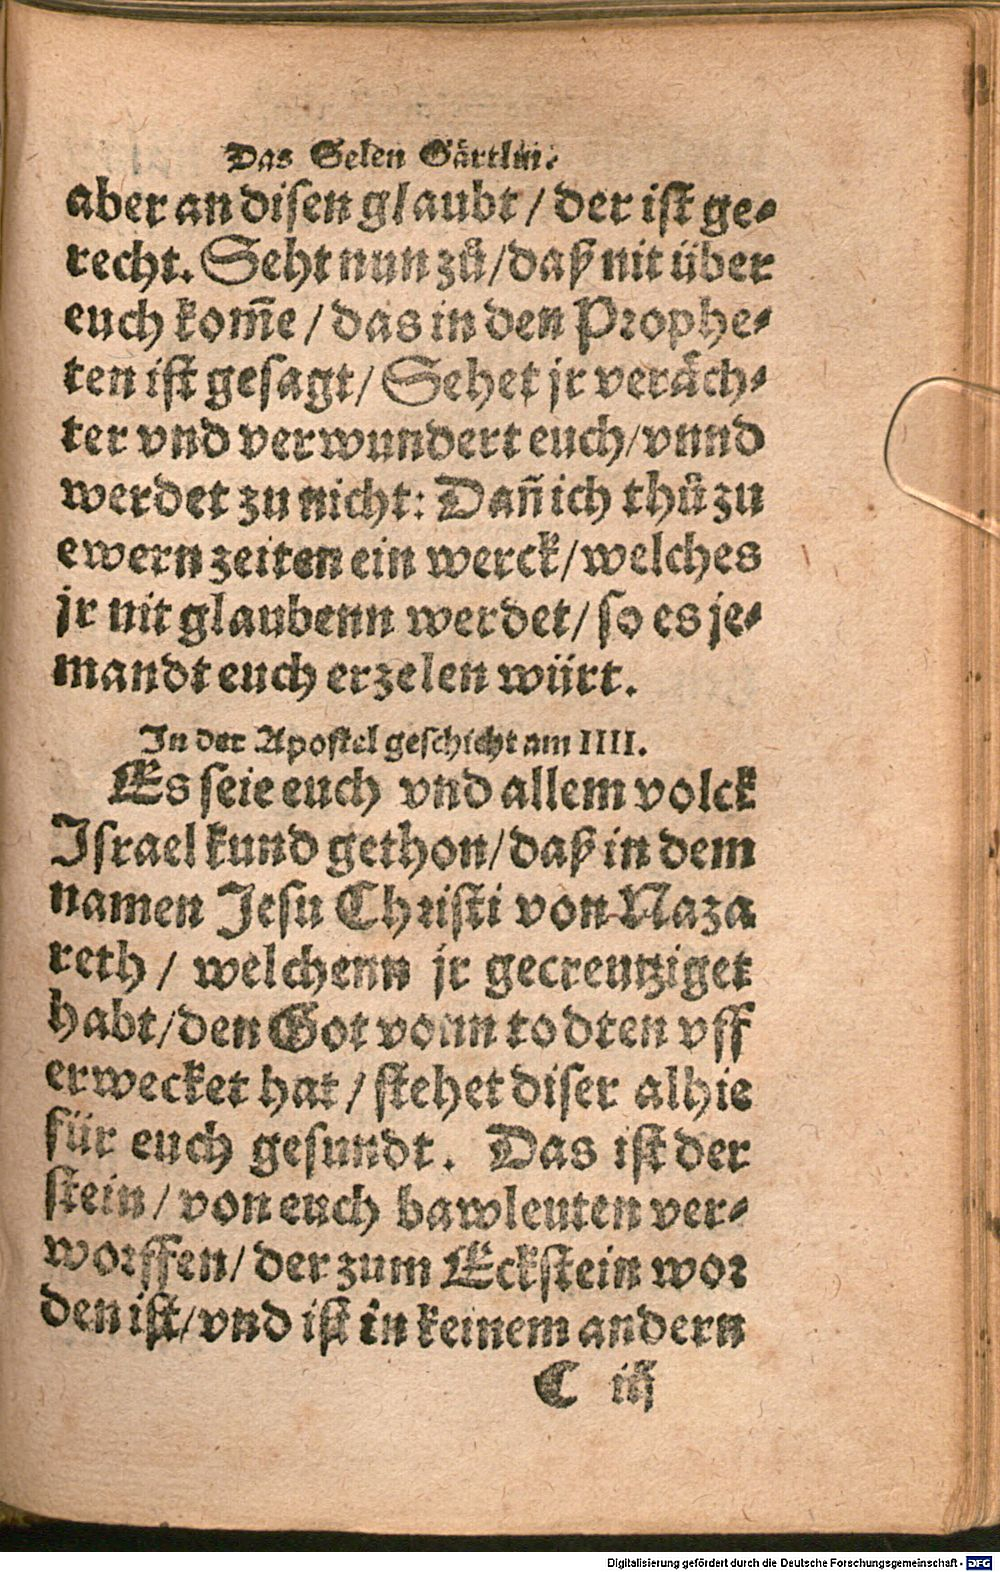 Das Selen Gärtlin.
aber an disen glaubt / der ist ge⸗
recht. Seht nun zů / daß nit über
euch kom̃e / das in den Prophe⸗
ten ist gesagt / Sehet jr veräch⸗
ter vnd verwundert euch / vnnd
werdet zu nicht: Dañ ich thů zu
ewern zeiten ein werck / welches
jr nit glaubenn werdet / so es je⸗
mandt euch erzelen würt.
In der Apostel geschicht am IIII.
Es seie euch vnd allem volck
Israel kund gethon / daß in dem
namen Jesu Christi von Naza
reth / welchenn jr gecreutziget
habt / den Got vonn todten vff
erwecket hat / stehet diser alhie
für euch gesundt. Das ist der
stein / von euch bawleuten ver⸗
worffen / der zum Eckstein wor
den ist / vnd ist in keinem andern
C iij
Digitalisierung gefördert durch die Deutsche Forschungsgemeinschaft - DFG